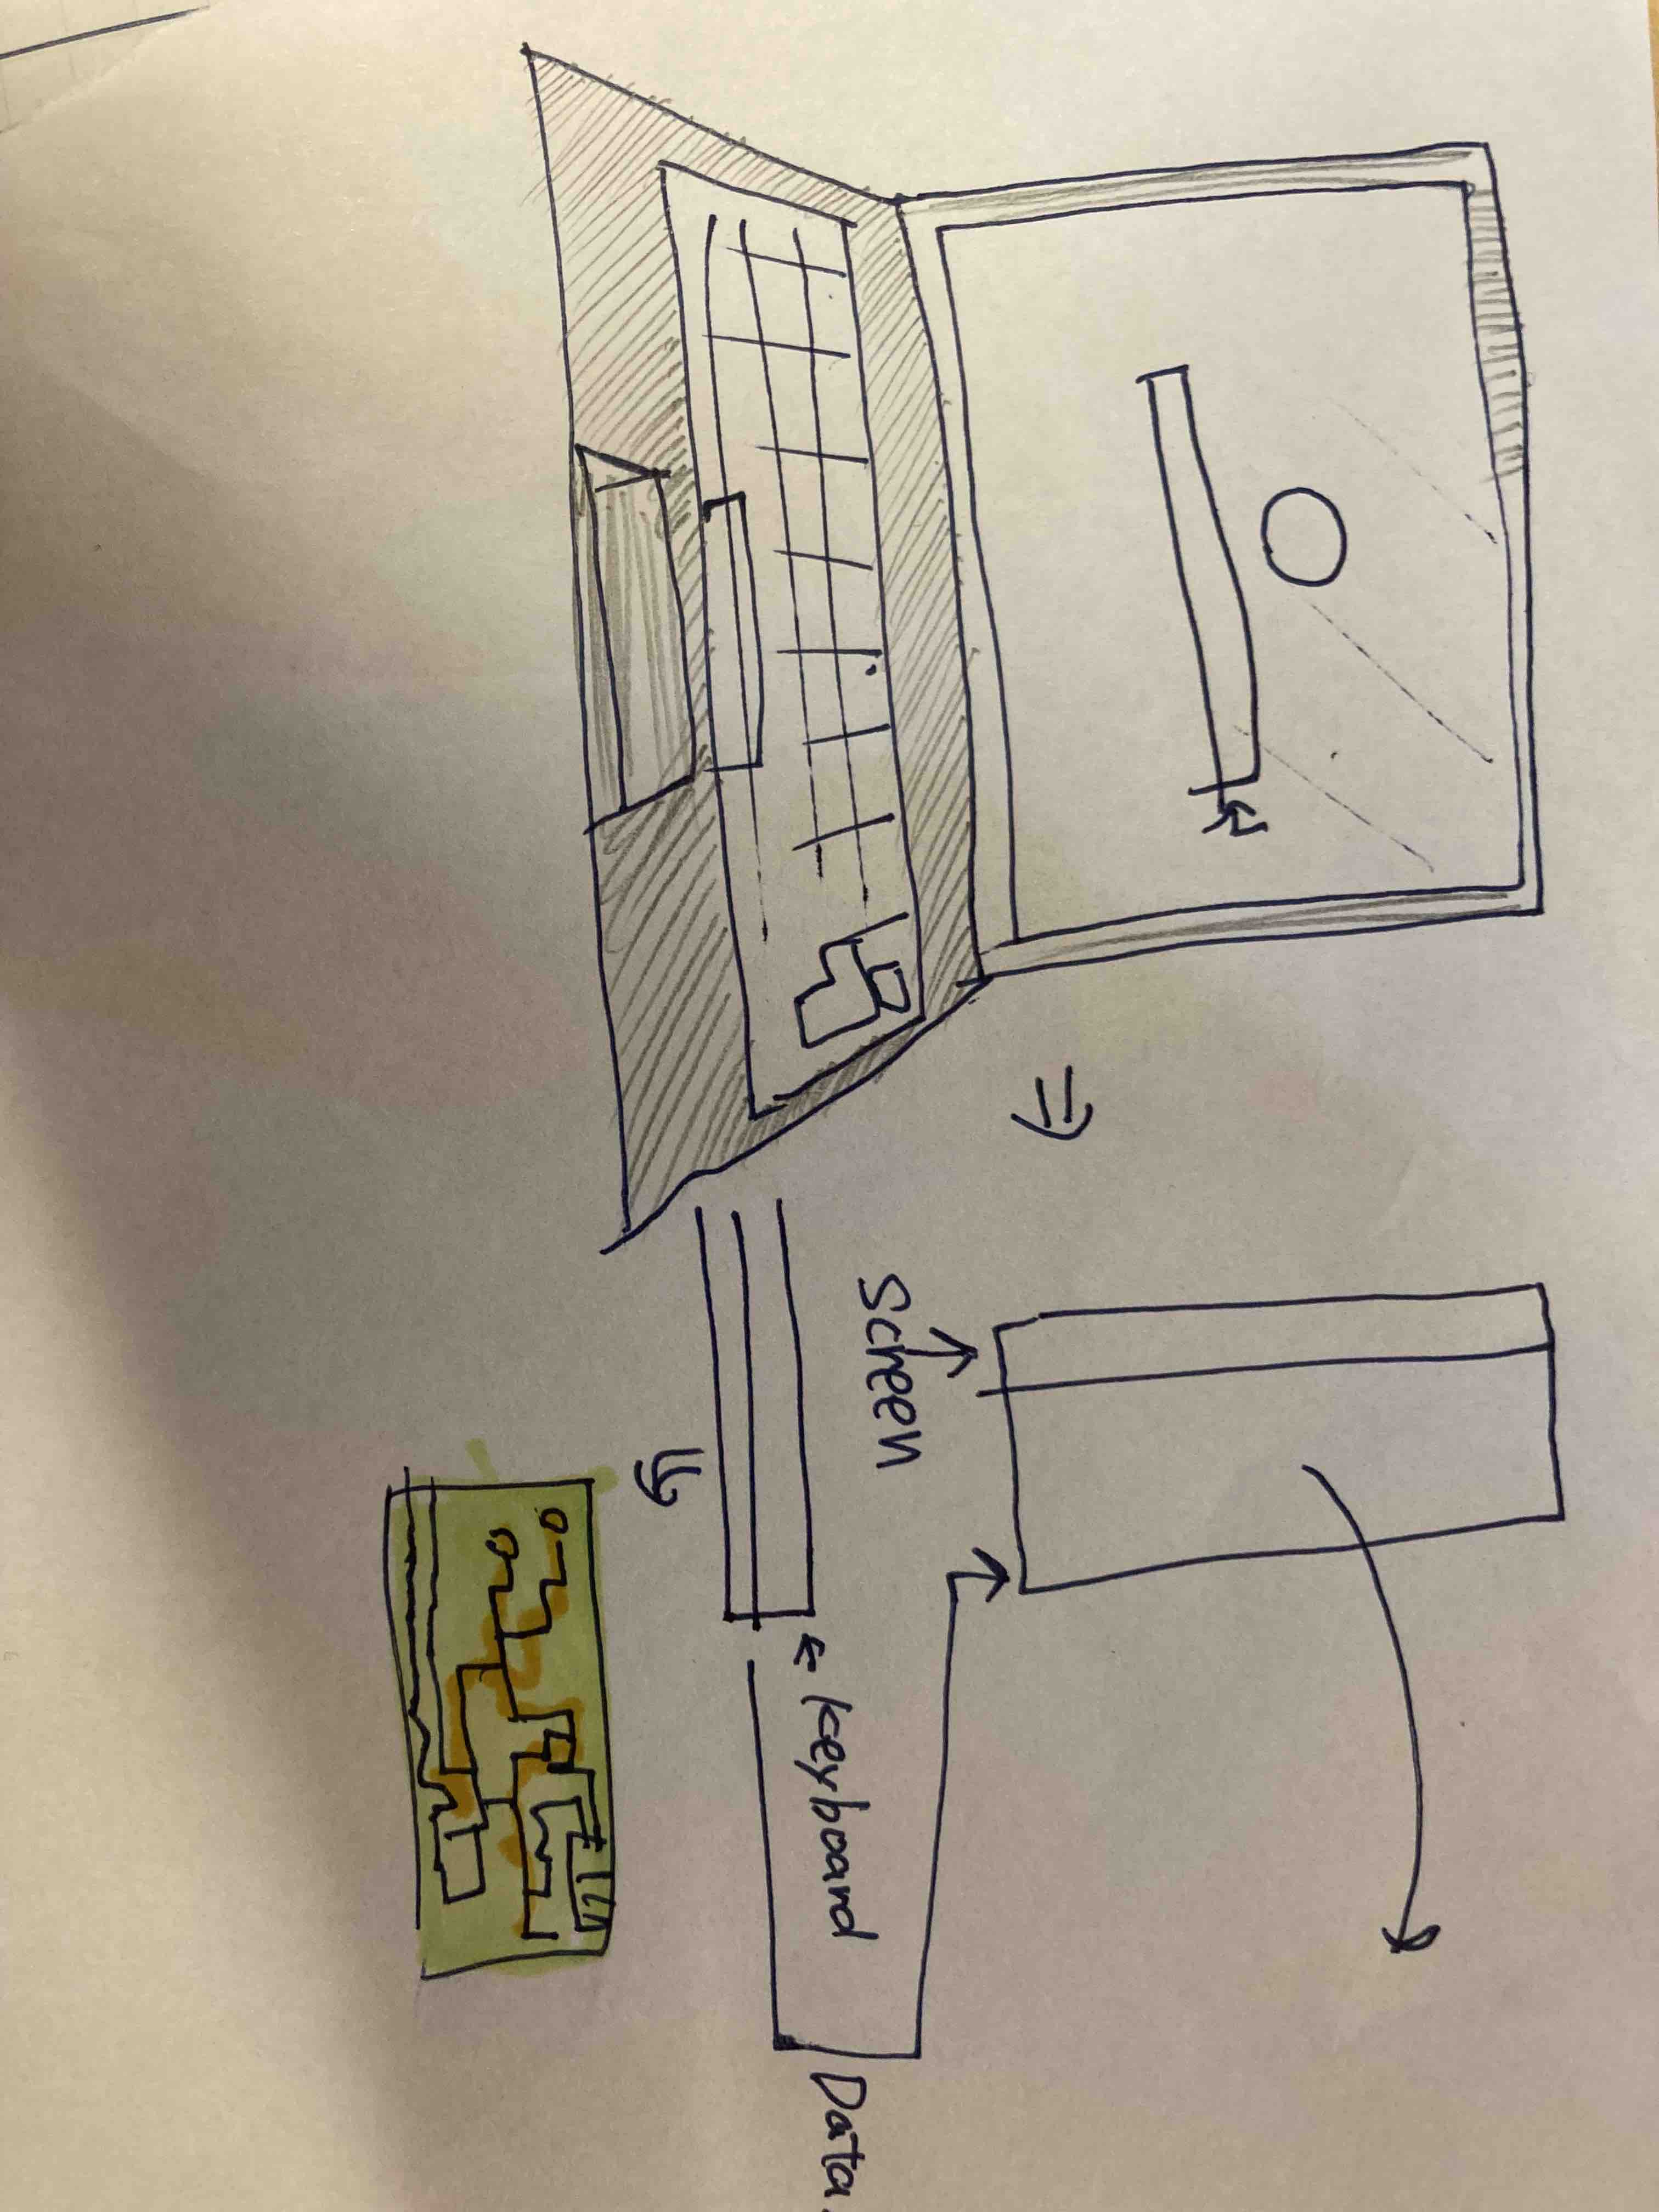 Screen
keyboard
Data.